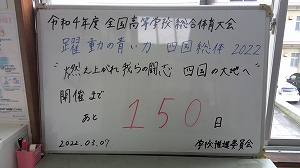 令和4年度 全国高等学校総合体育大会
躍動の青い力 四国総体 2022
"燃え上がれ我らの闘志 四国の大地へ"
開催まで
あと 150 日
2022.03.07 学校推進委員会